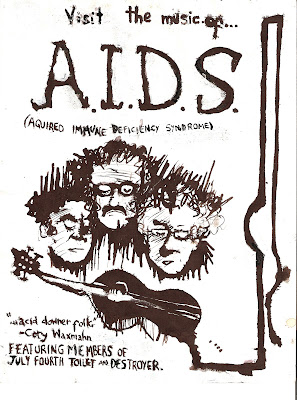 Visit the music op...
A.I.D.S.
(AQUIRED IMMUNE DEFICIENCY SYNDROME)
"...acid downer folk."
-Cory Waxmahn
FEATURING MEMBERS OF
JULY FOURTH TOILET AND DESTROYER.